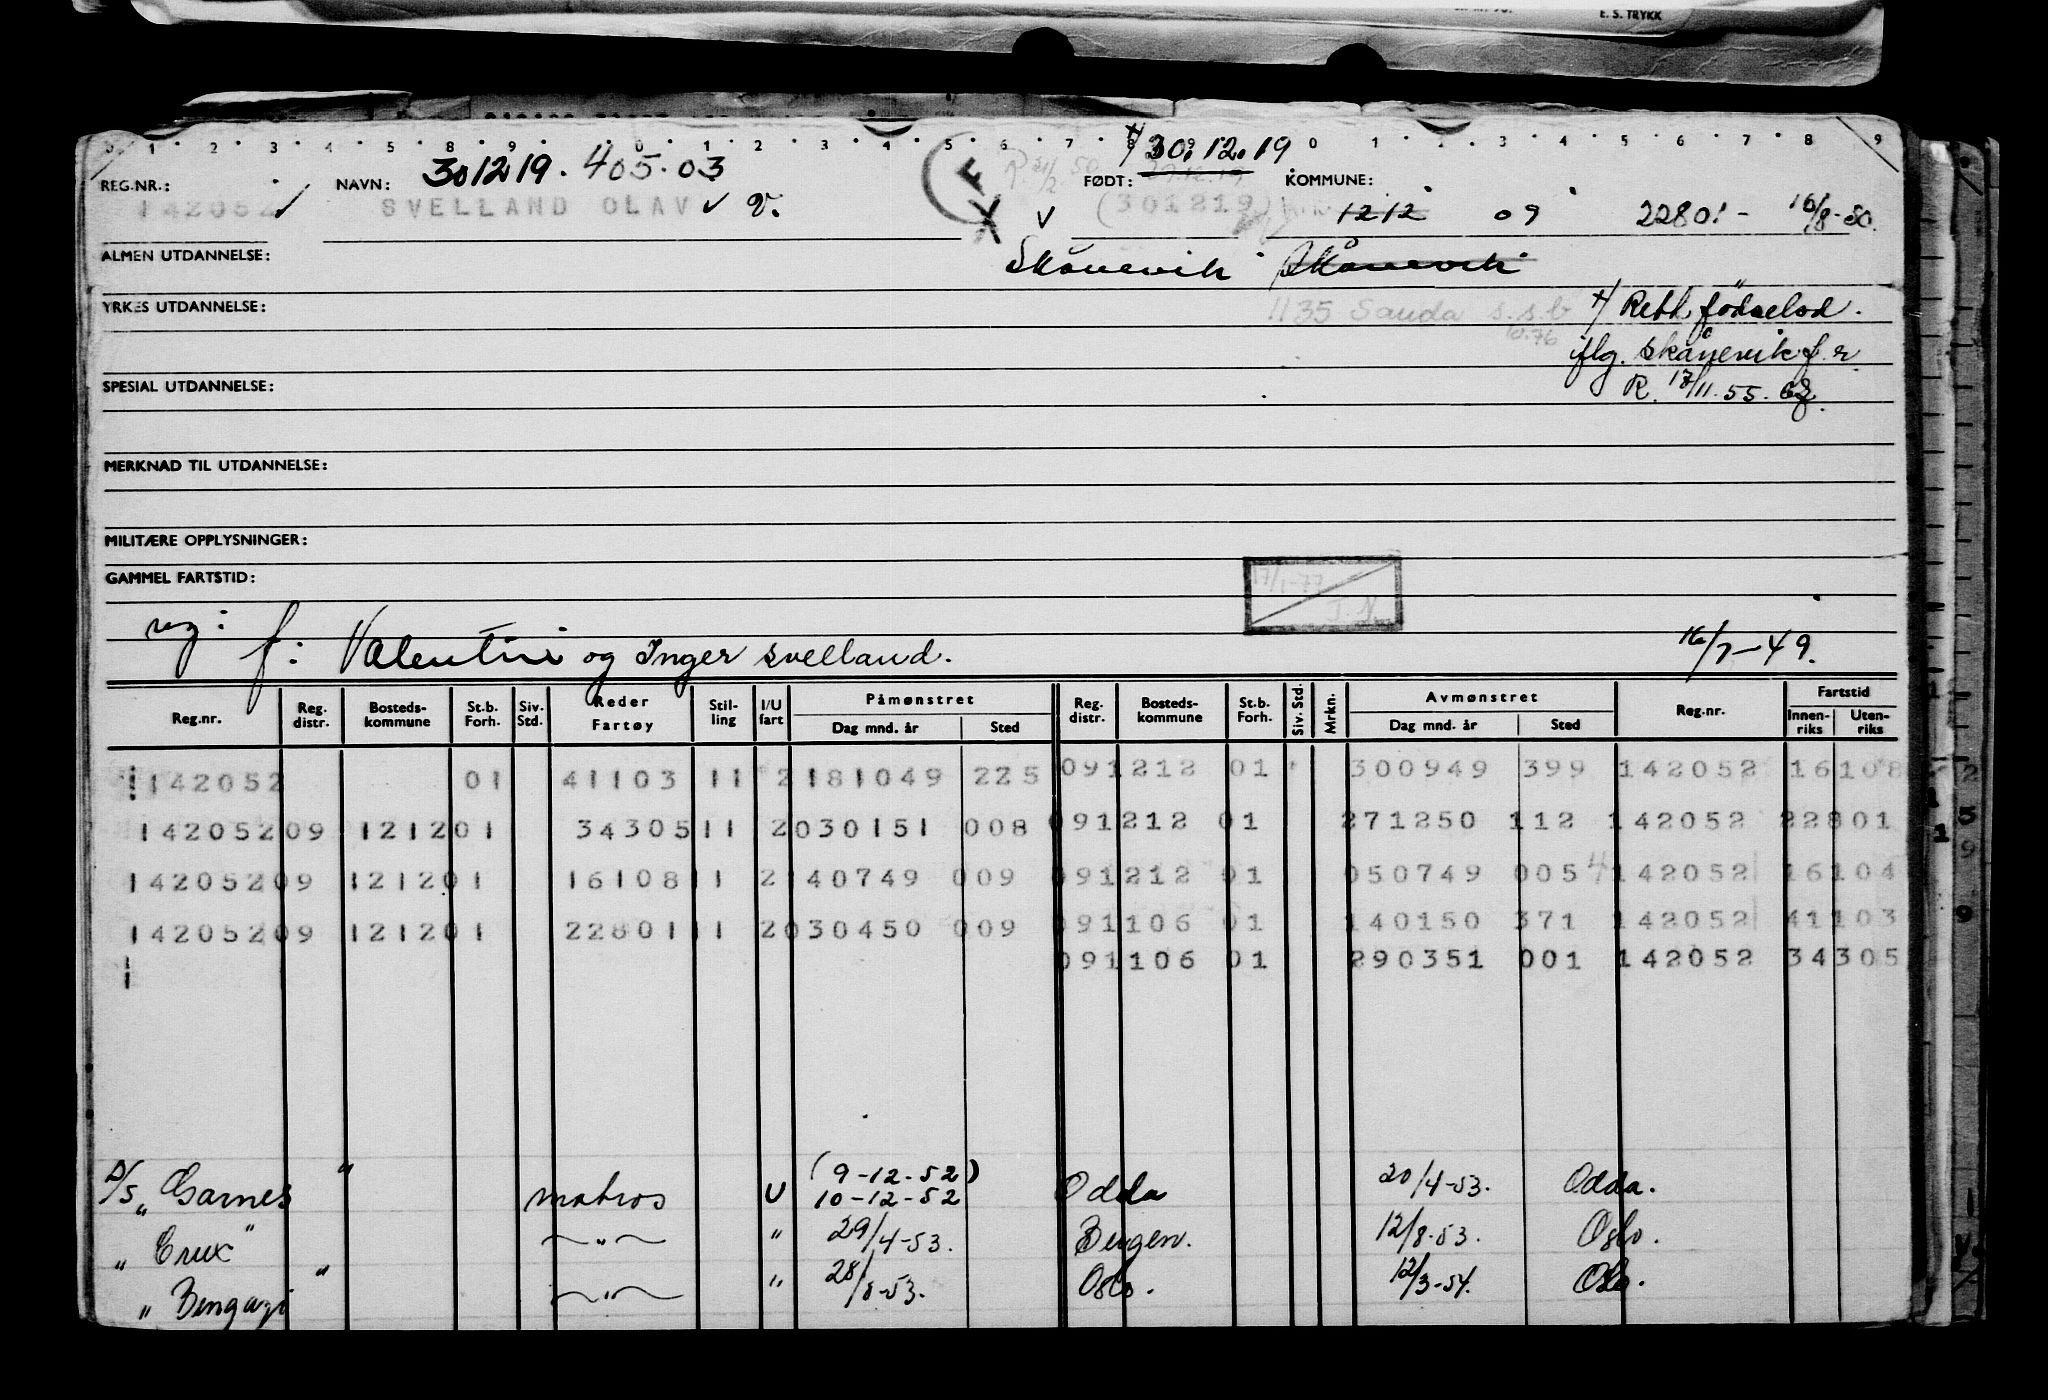 E. S. TRYKK
0 1 2 3 4 5 6 7 8 9 0 1 2 3 4 5 6 7 8 9 0 1 2 3 4 5 6 7 8 9
x/ 30.12.19
REG.NR.: NAVN: 301219. 405.03 F FØDT: 29.12.19 KOMMUNE:
142052 ✓ SVELLAND OLAV ✓ V. X V (301219) 1212 09 2280! - 16/8-50.
ALMEN UTDANNELSE: Skånevik Skånevik
YRKES UTDANNELSE: 1135 Sauda s.s.b x/ Rett fødselsd.
10.76
iflg. Skånevik f.r.
SPESIAL UTDANNELSE: R. 17/11.55.
MERKNAD TIL UTDANNELSE:
MILITÆRE OPPLYSNINGER:
GAMMEL FARTSTID: 17/1-77
reg: f: Valentin og Inger Svelland. 16/7-49.
Reg.nr. Reg. distr. Bosteds-kommune St.b. Forh. Siv. Std. Reder Fartøy Stil-ling I/U fart Påmønstret Dag mnd. år Sted Reg. distr. Bosteds-kommune St.b. Forh. Siv. Std. Mrkn. Avmønstret Dag mnd. år Sted Reg.nr. Fartstid Innen-riks Uten-riks
142052 01 41103 11 2 181049 225 09 1212 01 300949 399 142052 16108
142052 09 1212 01 34305 11 2 030151 008 09 1212 01 271250 112 142052 22801
142052 09 1212 01 16108 11 2 140749 009 09 1212 01 050749 005 4 142052 16104
142052 09 1212 01 22801 11 2 030450 009 09 1106 01 140150 371 142052 41103
09 1106 01 290351 001 142052 34305
(9-12-52)
D/S "Garnes" matros U 10-12-52 Odda 20/4-53. Odda.
" Crux" — " — " 29/4-53. Bergen. 12/8-53. Oslo.
" Bengazi" — " — " 28/8-53. Oslo. 12/3-54. Oslo.